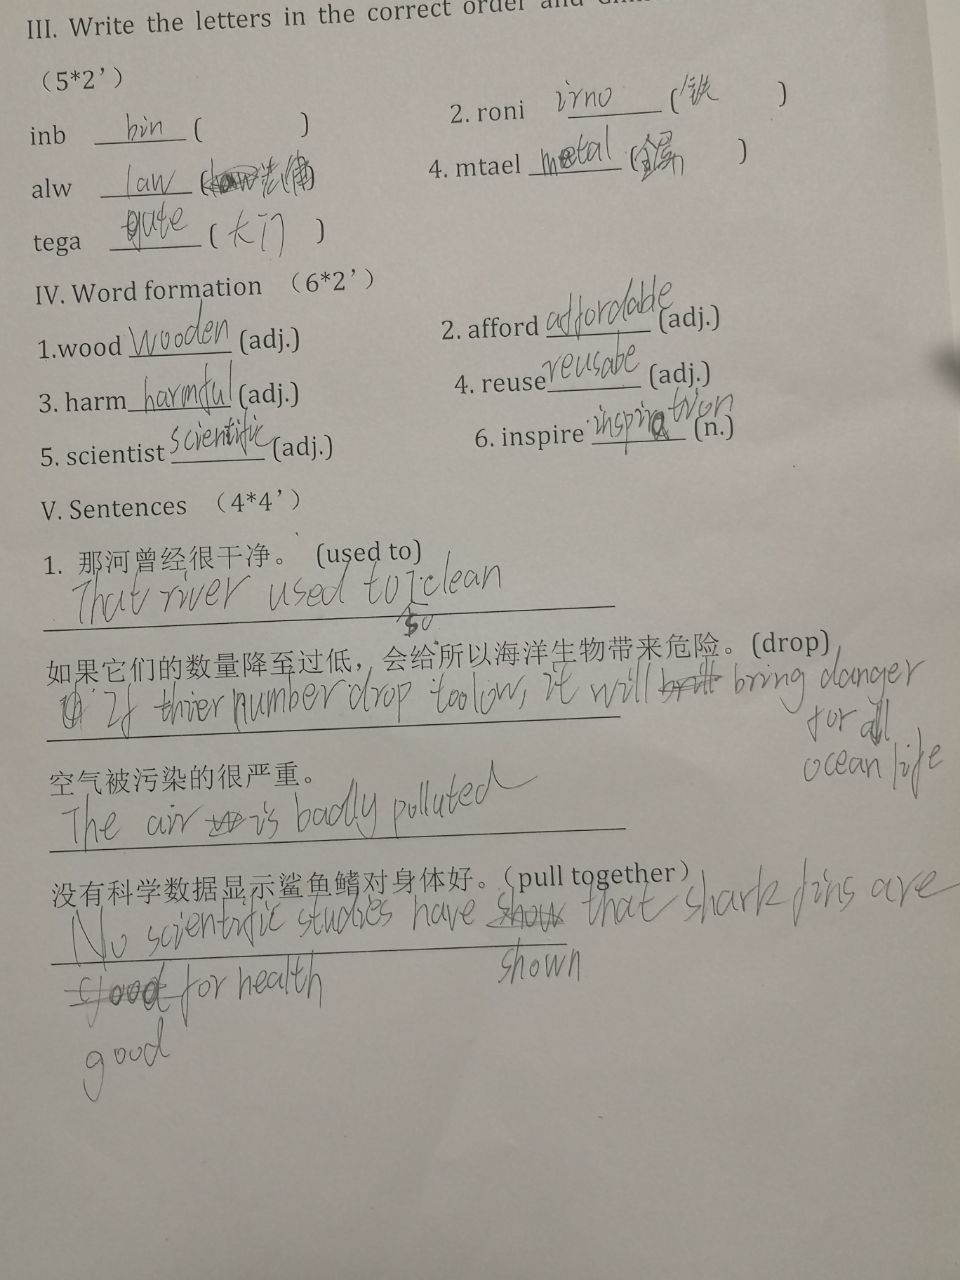 III. Write the letters in the correct order and
（5*2'）
inb bin ( ) 2. roni irno (铁 )
alw law (法律) 4. mtael metal (金属 )
tega gate (大门 )
IV. Word formation （6*2'）
1.wood wooden (adj.) 2. afford affordable (adj.)
3. harm harmful (adj.) 4. reuse reusabe (adj.)
5. scientist scientific (adj.) 6. inspire inspiration (n.)
V. Sentences （4*4'）
1. 那河曾经很干净。 (used to)
That river used to clean
so
如果它们的数量降至过低，会给所以海洋生物带来危险。(drop)
If thier number drop too low, it will bring danger
for all
ocean life
空气被污染的很严重。
The air is badly polluted
没有科学数据显示鲨鱼鳍对身体好。（pull together）
No scientific studies have show that shark fins are
shown
good for health
good